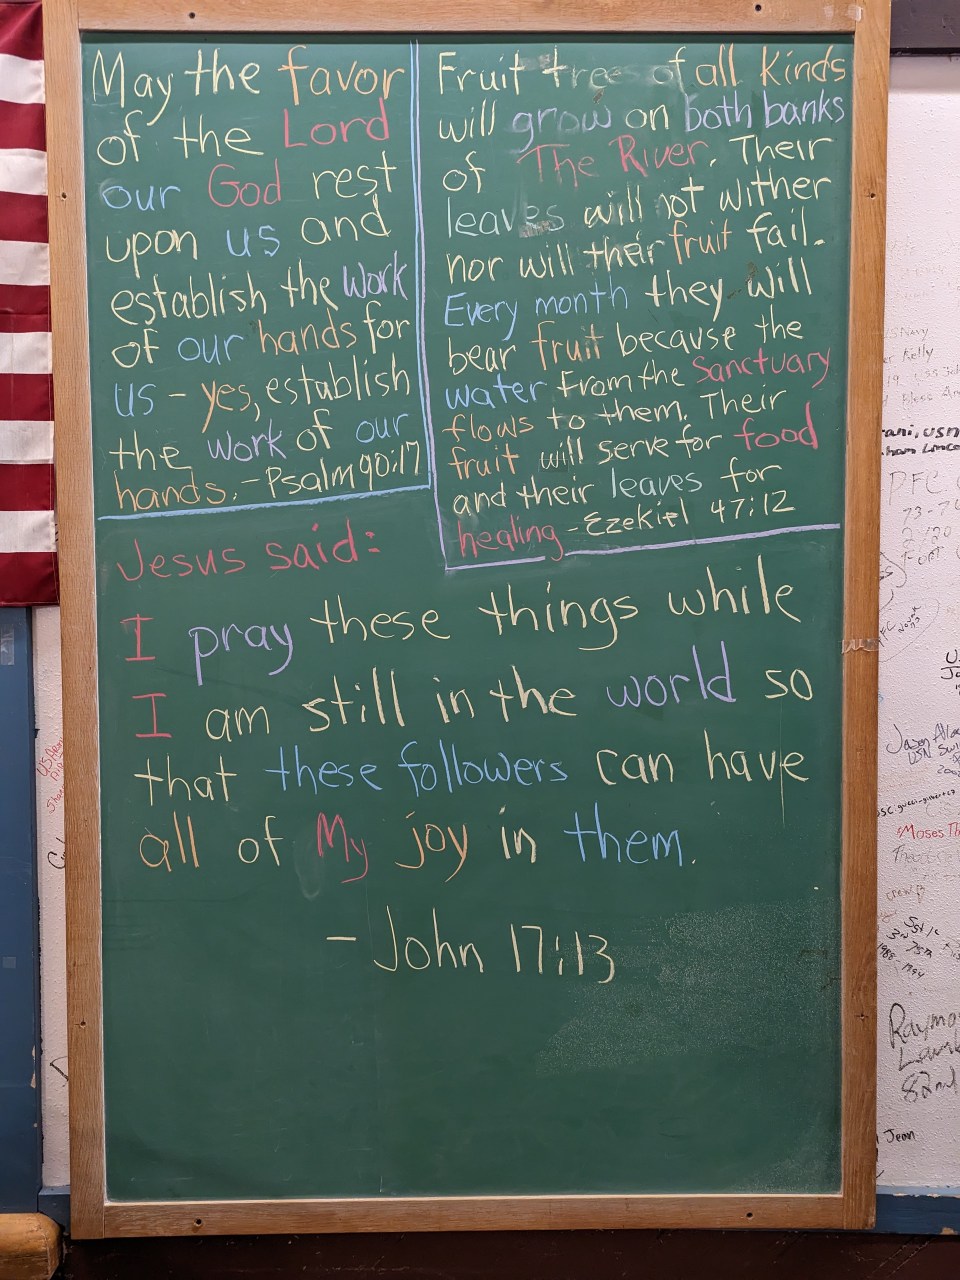 May the favor
of the Lord
our God rest
upon us and
establish the work
of our hands for
us – yes, establish
the work of our
hands. – Psalm 90:17
Fruit trees of all kinds
will grow on both banks
of The River. Their
leaves will not wither
nor will their fruit fail.
Every month they will
bear fruit because the
water from the Sanctuary
flows to them. Their
fruit will serve for food
and their leaves for
healing – Ezekiel 47:12
Jesus said:
I pray these things while
I am still in the world so
that these followers can have
all of My joy in them.
– John 17:13
Kelly
PFC
73-74
Jason
USN
Moses
1988
Raymo
82nd
Jean